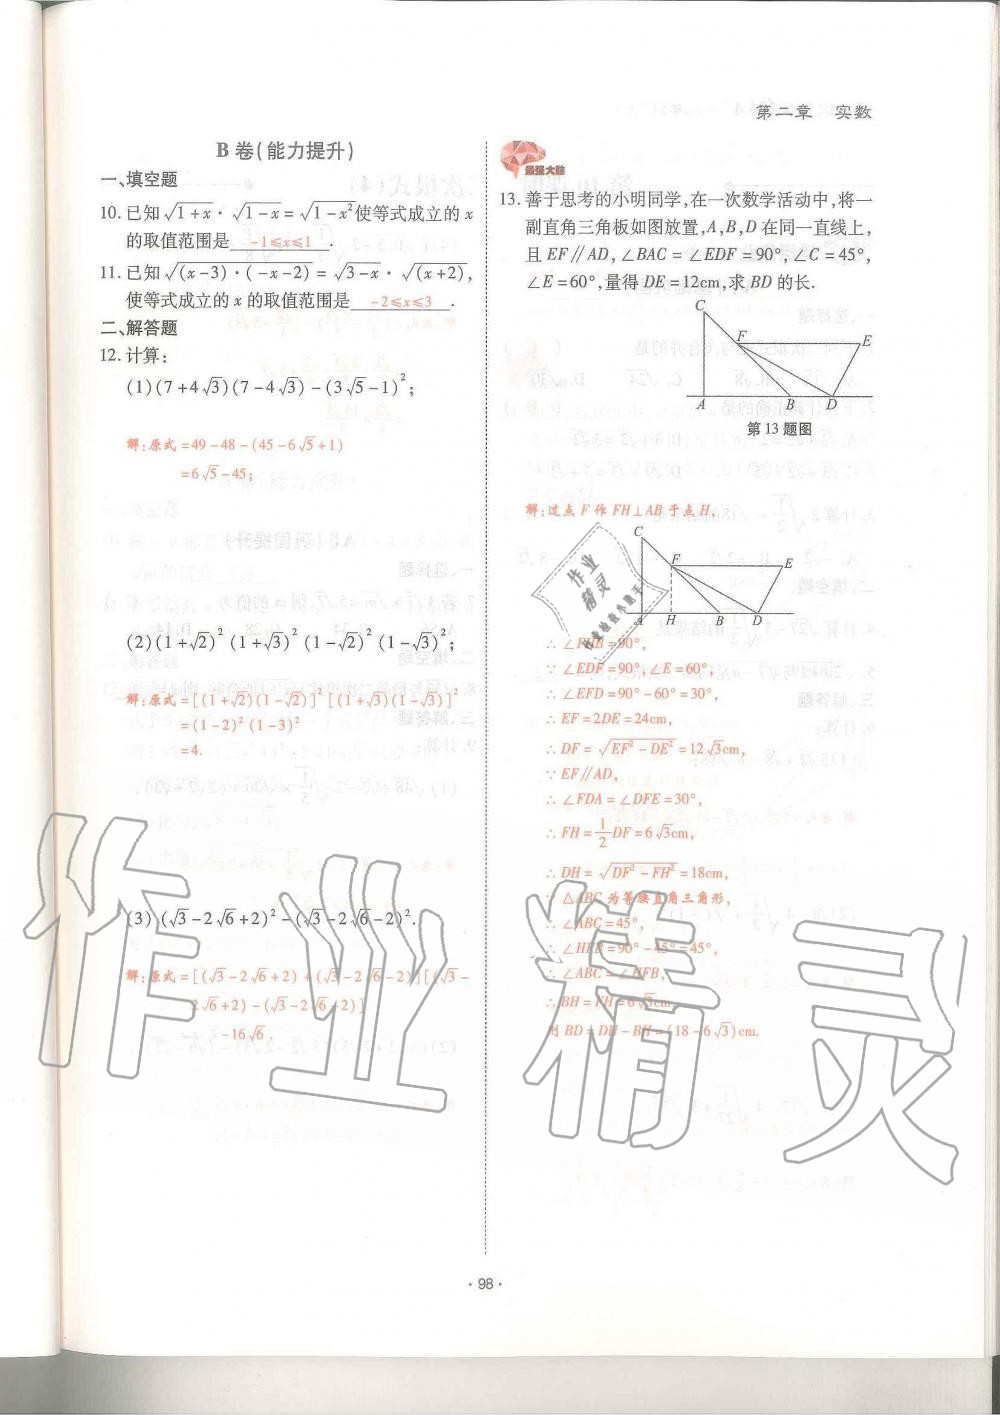 第二章 实数
B 卷(能力提升)
一、填空题
10. 已知√(1+x)·√(1-x)=√(1-x²)使等式成立的 x
的取值范围是 -1≤x≤1 .
11. 已知√((x-3)·(-x-2))=√(3-x)·√(x+2),
使等式成立的 x 的取值范围是 -2≤x≤3 .
二、解答题
12. 计算:
(1)(7+4√3)(7-4√3)-(3√5-1)²;
解:原式=49-48-(45-6√5+1)
=6√5-45;
(2)(1+√2)²(1+√3)²(1-√2)²(1-√3)²;
解:原式=[(1+√2)(1-√2)]²[(1+√3)(1-√3)]²
=(1-2)²(1-3)²
=4.
(3)(√3-2√6+2)²-(√3-2√6-2)².
解:原式=[(√3-2√6+2)+(√3-2√6-2)][(√3-
2√6+2)-(√3-2√6-2)]
-16√6.
最强大脑
13. 善于思考的小明同学,在一次数学活动中,将一
副直角三角板如图放置,A,B,D在同一直线上,
且 EF∥AD,∠BAC=∠EDF=90°,∠C=45°,
∠E=60°,量得 DE=12cm,求 BD 的长.
C
F
E
A
B
D
第13题图
解:过点 F 作 FH⊥AB 于点 H,
C
F
E
A
H
B
D
∴∠FHB=90°,
∵∠EDF=90°,∠E=60°,
∴∠EFD=90°-60°=30°,
∴EF=2DE=24cm,
∴DF=√(EF²-DE²)=12√3cm,
∵EF∥AD,
∴∠FDA=∠DFE=30°,
∴FH=1/2DF=6√3cm,
∴DH=√(DF²-FH²)=18cm,
∵△ABC 为等腰直角三角形,
∴∠ABC=45°,
∴∠HFB=90°-45°=45°,
∴∠ABC=∠HFB,
∴BH=FH=6√3cm,
则 BD=DH-BH=(18-6√3)cm.
作业精灵
·98·